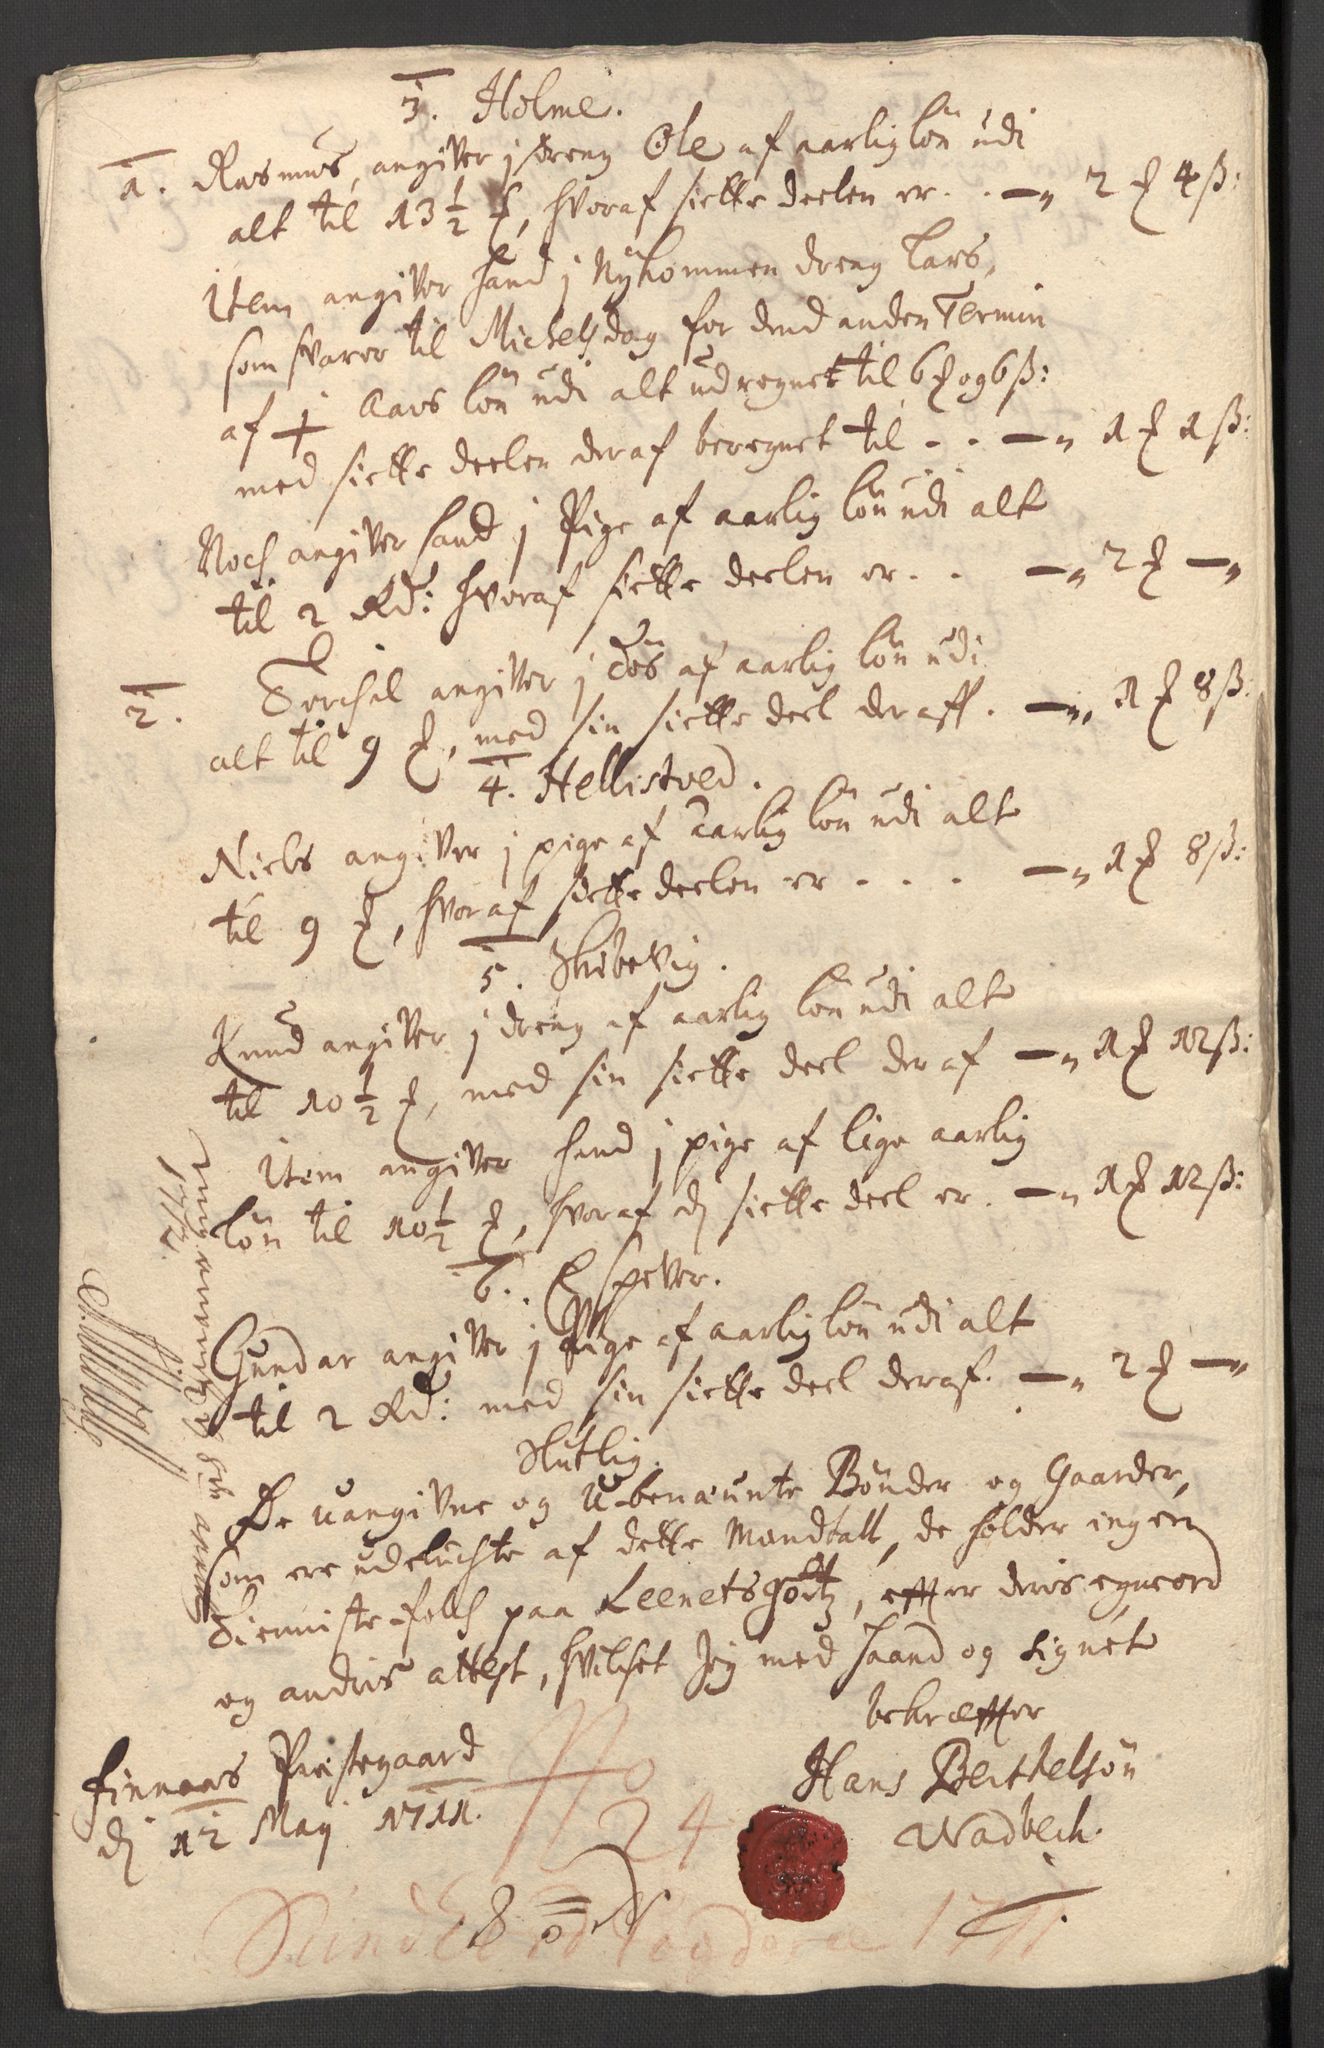 3. Holme.
1. Rasmus, angiver j dreng Ole af aarlig lön udi
alt til 13 1/2 ₰, hvoraf siette deelen er . . — „ 2 ₰ 4 ß:
Item angiver hand j Nykommen dreng Lars,
som svarer til Michelsdag for dend anden Termin
af Aars lön udi alt udregnet til 6 ₰ og 6 ß:
med siette deelen deraf beregnet til - - — „ 1 ₰ 1 ß:
Noch angiver hand j Pige af aarlig lön udi alt
til 2 Rd: hvoraf siette deelen er . . — „ 2 ₰ — „
2. Torchel angiver j Tös af aarlig lön udi
alt til 9 ₰, med sin siette deel deraff. — „ 1 ₰ 8 ß:
4. Hellistved.
Niels angiver j pige af aarlig lön udi alt
til 9 ₰, hvoraf siette deelen er . . . — „ 1 ₰ 8 ß:
5. Skibevig.
Knud angiver j dreng af aarlig lön udi alt
til 10 1/2 ₰, med sin siette deel deraf — „ 1 ₰ 12 ß:
Item angiver hand j pige af lige aarlig
lön til 10 1/2 ₰, hvoraf dj siette deel er. — „ 1 ₰ 12 ß:
6. Espever.
Gundar angiver j Pige af aarlig lön udi alt
til 2 Rd: med sin siette deel deraf. — „ 2 ₰ — „
Slutlig.
De uangivne og U-benæunte Bönder og Gaarder,
som ere udeluchte af dette Mandtall, de holder ingen
Tienniste-folch paa Leenets Gotz, effter deris egne ord
og andris attest, hvilchet Jeg med haand og Signet
bekræffter
Finnaas Præstegaard
dj 12 Maij 1711.
Hans Berthelsön
Wadbech.
No
24
8
Sundhord fogderie 1711
1712.